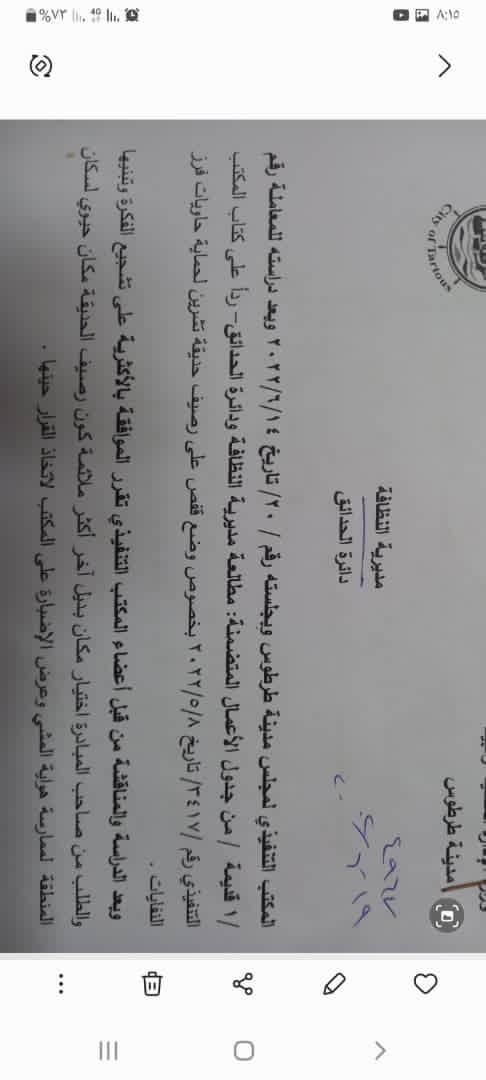 ٨:١٥
4G
%٧٣
City of Tartous
مدينة طرطوس
٤٩٦٧
١٩
مديرية النظافة
دائرة الحدائق
المكتب التنفيذي لمجلس مدينة طرطوس وبجلسته رقم /٢٠/ تاريخ ٢٠٢٢/٦/١٤ وبعد دراسته للمعاملة رقم
/١ قديمة/ من جدول الأعمال المتضمنة: مطالعة مديرية النظافة ودائرة الحدائق- رداً على كتاب المكتب
التنفيذي رقم /٣٤١٧/ تاريخ ٢٠٢٢/٥/٨ بخصوص وضع قفص على رصيف حديقة تشرين لحماية حاويات فرز
النفايات .
وبعد الدراسة والمناقشة من قبل أعضاء المكتب التنفيذي تقرر الموافقة بالأكثرية على تشجيع الفكرة وتبنيها
والطلب من صاحب المبادرة اختيار مكان بديل آخر أكثر ملائمة كون رصيف الحديقة مكان حيوي لسكان
المنطقة لممارسة هواية المشي وعرض الإضبارة على المكتب لاتخاذ القرار حينها .